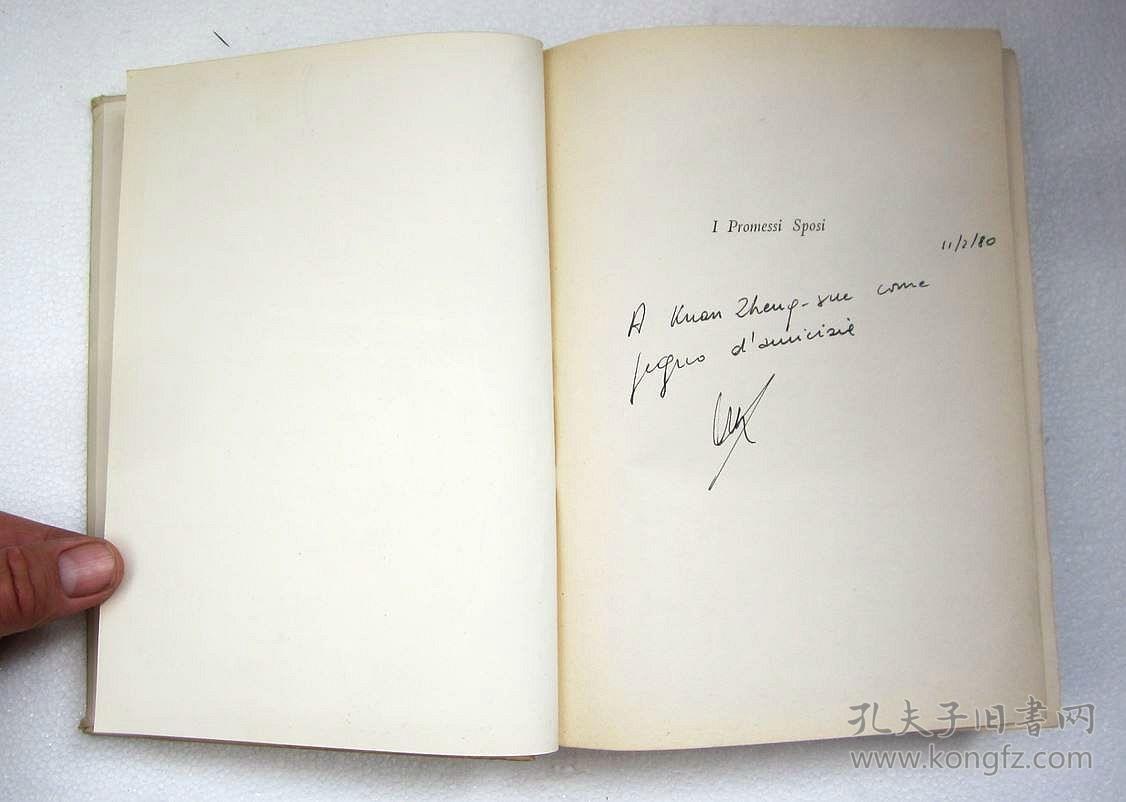 I Promessi Sposi
11/2/80
A Kuan Zheng-xue come
segno d'amicizia
孔夫子旧書网
www.kongfz.com